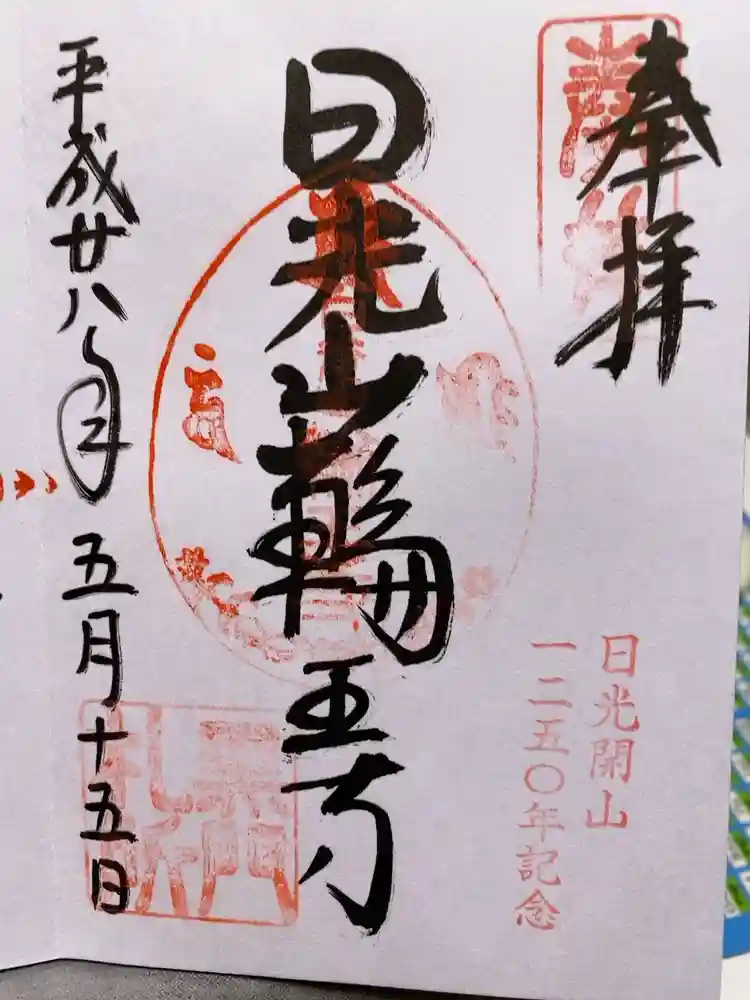 奉拝
日光開山
一二五〇年記念
日光山輪王寺
平成廿八年五月十五日